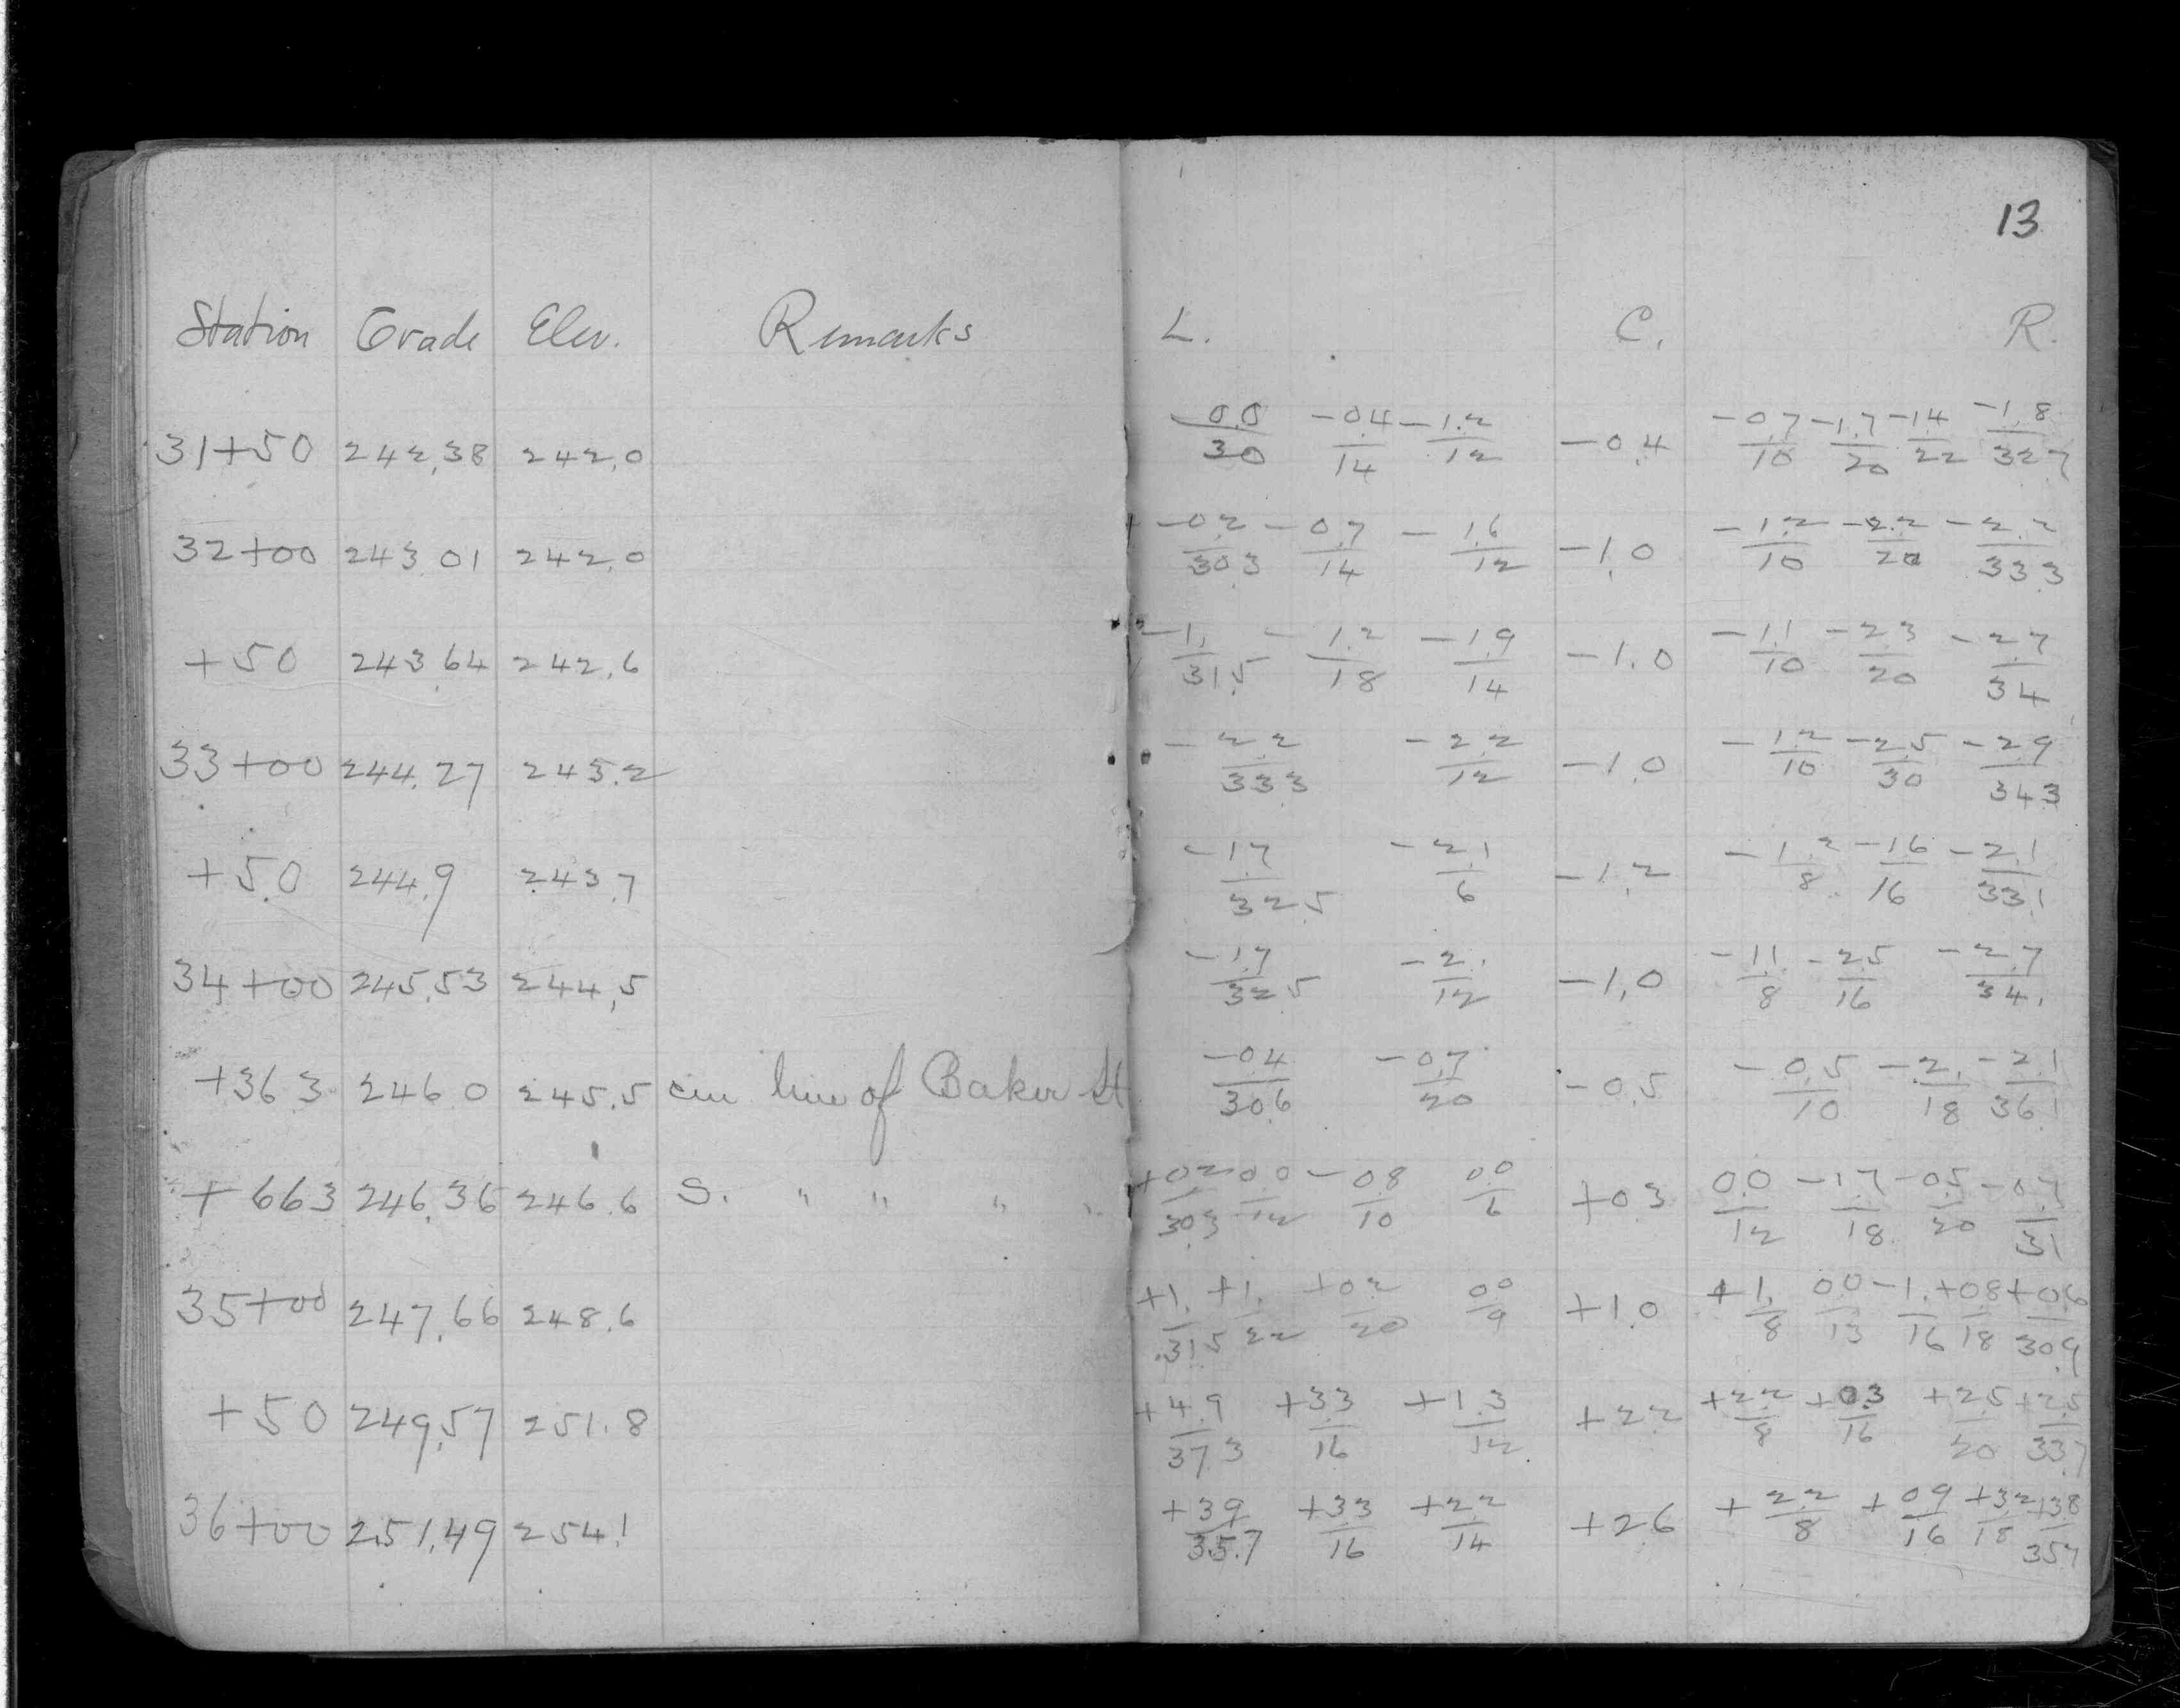 13
Station Grade Elev. Remarks L. C. R.
31+50 242.38 242.0 0.0/30 -0.4/14 -1.2/12 -0.4 -0.7/10 -1.7/20 -1.4/22 -1.8/32.7
32+00 243.01 242.0 -0.2/30.3 -0.7/14 -1.6/12 -1.0 -1.2/10 -2.2/20 -2.2/33.3
+50 243.64 242.6 -1./31.5 -1.2/18 -1.9/14 -1.0 -1.1/10 -2.3/20 -2.7/34
33+00 244.27 243.2 -2.2/33.3 -2.2/12 -1.0 -1.2/10 -2.5/30 -2.9/34.3
+50 244.9 243.7 -1.7/32.5 -2.1/6 -1.2 -1.2/8 -1.6/16 -2.1/33.1
34+00 245.53 244.5 -1.7/32.5 -2./12 -1.0 -1.1/8 -2.5/16 -2.7/34.1
+36.3 246.0 245.5 cen line of Baker St -0.4/30.6 -0.7/20 -0.5 -0.5/10 -2./18 -2.1/36.1
+66.3 246.36 246.6 S. " " " " +0.2/30.3 0.0/12 -0.8/10 0.0/6 +0.3 0.0/12 -1.7/18 -0.5/20 -0.7/31
35+00 247.66 248.6 +1./31.5 +1./22 +0.2/20 0.0/9 +1.0 +1./8 0.0/13 -1./16 +0.8/18 +0.6/30.9
+50 249.57 251.8 +4.9/37.3 +3.3/16 +1.3/12 +2.2 +2.2/8 +0.3/16 +2.5/20 +2.5/33.7
36+00 251.49 254.1 +3.9/35.7 +3.3/16 +2.2/14 +2.6 +2.2/8 +0.9/16 +3.2/18 +3.8/35.7